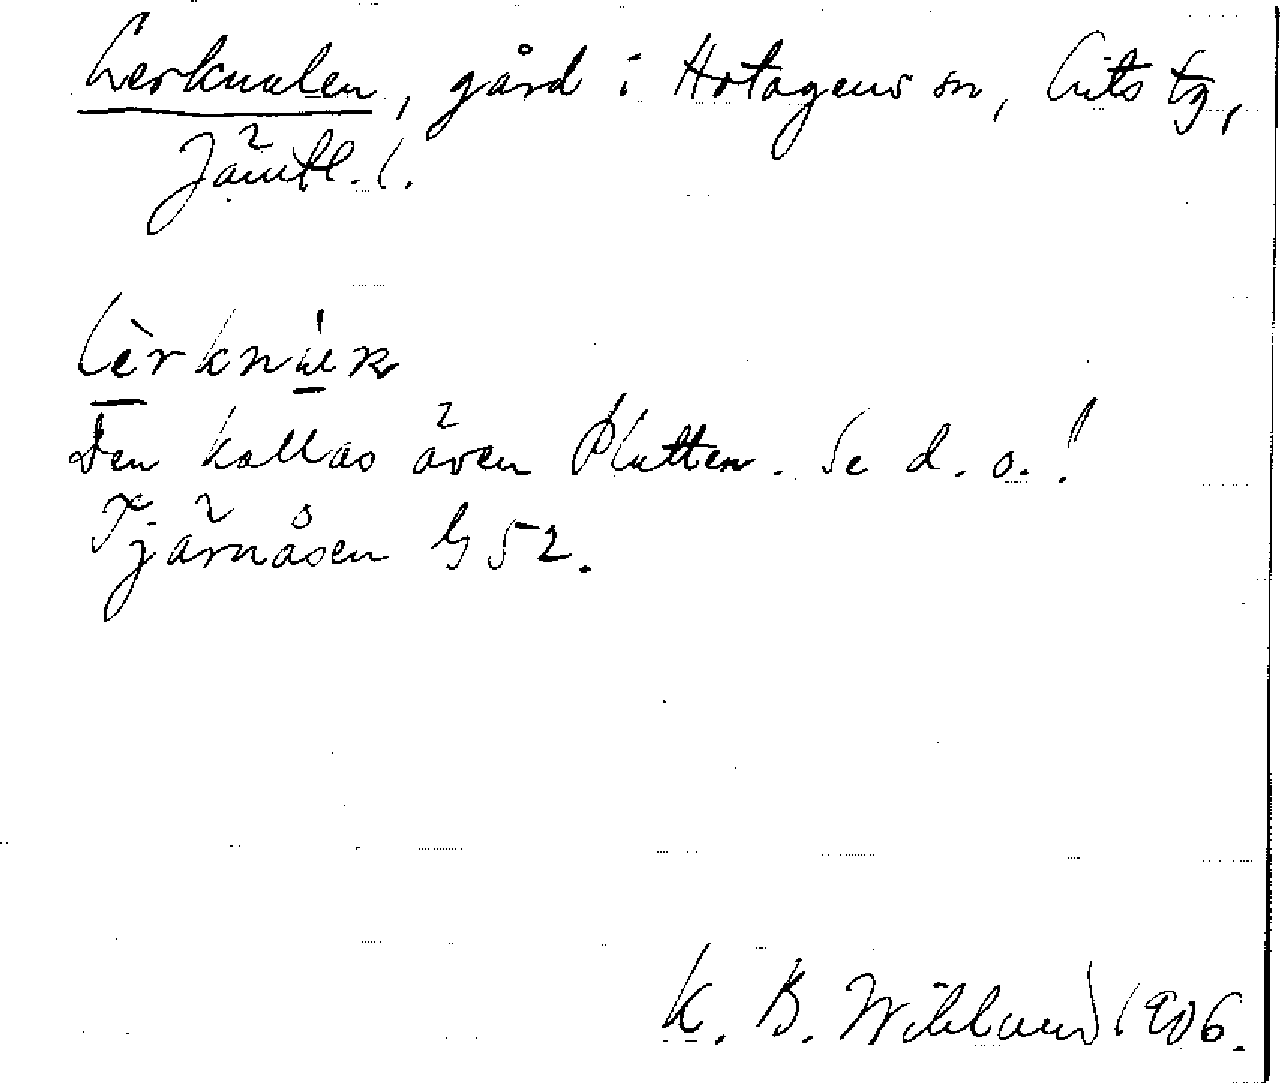 Lerknulen, gård i Hotagens sn, Lits tg,
Jämtl. l.
Den kallas även Plutten. Se d. o.!
Tjärnåsen G 52.
K. B. Wiklund 1906.